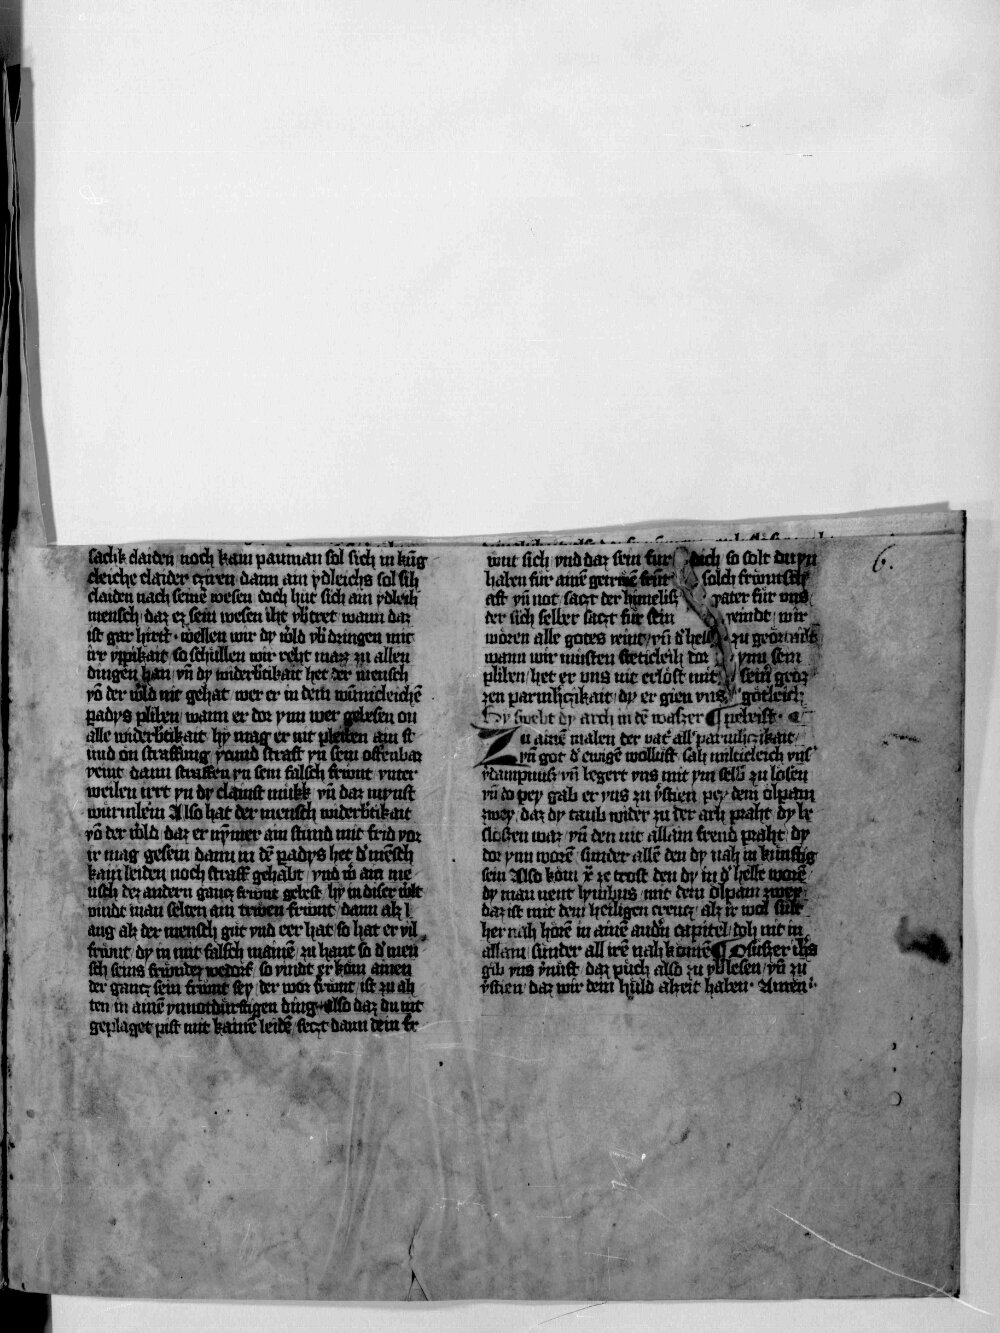 sachk claiden noch kain pauman sol sich in kūg
cleiche claider cziren dann ain ydleichs sol sih
claiden nach seinē wesen doch hüt sich ain ydleih
mensch daz ez sein wesen iht vbtret wann daz
ist gar hirtt · wellen wir dy wͦld vbdringen mit
irr yppikait so schullen wir reht maz zu allen
dingen han / vn̄ dy widerbtikait het der mensch
vō der wͦld nit gehat wer er in dem wūnicleichē
padys pliben / wann er dor ynn wer gelesen on
alle widerbtikait hy mag er nit pleiben ain st
und on straffung / yemd straff yn sein offenbar
veint dann straffen yn sein falsch frewnt vnter
weilen irrt yn dy clainst mukk vn̄ daz mynst
würmlein Also hat der mensch widerbtikait
vō der wͦld daz er nȳmer ain stund mit frid vor
ir mag gesein dann in dē padys het d' mēsch
kain leiden noch straff gehabt / vnd wͦ ain me
nsch dez andern gancz frewnt gelest / hy in diser wͦlt
vindt man selten ain trewen frewnt / dann alz l
ang alz der mensch gut vnd eer hat so hat er vil
frewnt / dy in mit falsch mainē / zu hant so d' men
sch seins frewndez wedorf / so vindt er kom ainen
der gancz sein frewnt sey / der wor frewnt / ist zu ah
ten in ainē ynnotdürftigen ding · Also daz du nit
geplaget pist mit kainē leidē / seczt dann dein fr
6.
wnt sich vnd daz sein für dich so solt du yn
haben für ainē getrewē frūt solch frewntsch
aft vn̄ not saczt der himelisz vater für vns
der sich selber saczt für sein veindt / wir
woren alle gotes veint / vn̄ d' hell zu geornēt
wann wir musten steticleih dor ynn sein
pliben / het er vns nit erlöst mit sein groz
zen parmhczikait / dy er gien vns götleich
Hy swebt dy arch in dē waszer ¶
Zu ainē malen der vat' all' parmhczikait /
vn̄ got d' ewigē wollust sah milticleich vns'
v'dampnusz vn̄ begert vns mit ym selb zu lösen
vn̄ do pey gab er vns zu v'stien pey dem ölpam
zwey / daz dy taub wider zu der arh praht / dy be
sloszen waz / vn̄ den nit allain freud praht / dy
dor ynn worē / sunder allē den dy nah in künftig
sein Also kom xͥ ze trost den dy in d' helle worē
dy man nent lymbus / mit dem ölpam zwey
daz ist mit dem heiligen creucz / alz ir wol süllt
her nah horē in ainē andn capitel / doh nit in
allain / sunder all irē nah komē ¶ O suszer ihs
gib vns v'nuft daz puch also zu vblesen / vn̄ zu
v'stien / daz wir dein huld alzeit haben · Amen ·